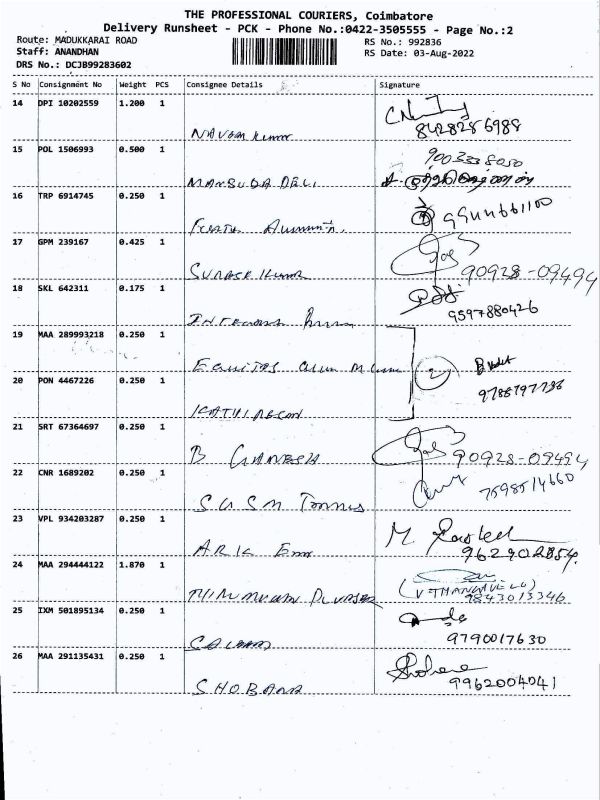 THE PROFESSIONAL COURIERS, Coimbatore
Delivery Runsheet - PCK - Phone No.:0422-3505555 - Page No.:2
Route: MADUKKARAI ROAD
RS No.: 992836
Staff: ANANDHAN
RS Date: 03-Aug-2022
DRS No.: DCJB99283602
S No Consignment No Weight PCS Consignee Details Signature
14 DPI 10202559 1.200 1
Naveen Kumar 8428286988
15 POL 1506993 0.500 1
9003338050
MANSUGA DELI
16 TRP 6914745 0.250 1
9944661100
17 GPM 239167 0.425 1
Suresh Kumar 90928-09494
18 SKL 642311 0.175 1
9597880426
19 MAA 289993218 0.250 1
EQUITAS
2
20 PON 4467226 0.250 1
9788797736
KATHIRESAN
21 SRT 67364697 0.250 1
B GANESH 90928-09494
22 CNR 1689202 0.250 1
7598514660
SUSM
23 VPL 934203287 0.250 1
M
ARK 962902854
24 MAA 294444122 1.870 1
(V THANGAVELU)
9843013346
25 IXM 501895134 0.250 1
9790017630
26 MAA 291135431 0.250 1
Shobana
SHOBANA 9962004041